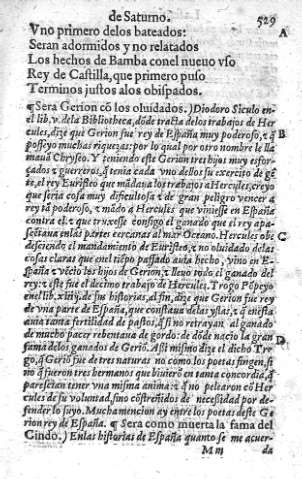 de Saturno. 529
Vno primero delos bateados: A
Seran adormidos y no relatados
Los hechos de Bamba conel nueuo vso
Rey de Castilla, que primero puso
Terminos justos alos obispados.
¶ Sera Gerion cõ los oluidados.) Diodoro Siculo en-
el lib. v. dela Bibliotheca, dõde tracta delos trabajos de Her
cules, dize que Gerion fue rey de España muy poderoso, y q̃ B
posseyo muchas riquezas: por lo qual por otro nombre le lla
mauã Chryseo. Y teniendo este Gerion tres hijos muy esfor-
çados y guerreros, q̃ tenia cada vno dellos su exercito de gẽ
te, el rey Euristeo que mãdaua los trabajos a Hercules, creyo
que seria cosa muy dificultosa y de gran peligro vencer a
rey tã poderoso, y mãdo a Hercules que viniesse en España
contra el: y que truxesse consigo el ganado que el rey apa-
scẽtaua enlas partes cercanas al mar Oceano. Hercules obe C
desciendo el mandamiento de Euristeo, y no oluidado delas
cosas claras que enel tiẽpo passado auia hecho, vino en Es-
paña y vẽcio los hijos de Gerion, y lleuo todo el ganado del
rey: y este fue el decimo trabajo de Hercules. Trogo Põpeyo
enel lib. xliiij. de sus historias, al fin, dize que Gerion fue rey
de vna parte de España, que constaua delas yslas, y q̃ enesta
auia tanta fertilidad de pastos, q̃ si no retrayan al ganado
de mucho pacer rebentaua de gordo: de dõde nacio la gran
fama delos ganados de Geriõ. Assi mismo dize el dicho Tro D
go, q̃ Geriõ fue de tres naturas no como los poetas fingen, si
no q̃ fueron tres hermanos que biuierõ en tanta concordia, q̃
parescian tener vna misma anima: y q̃ no peliaron cõ Her
cules de su voluntad, sino cõstreñidos de necesidad por de-
fender lo suyo. Mucha mencion ay entre los poetas deste Ge
rion rey de España. ¶ Sera como muerta la fama del
Cindo.) Enlas historias de España quanto se me acuer-
M m da